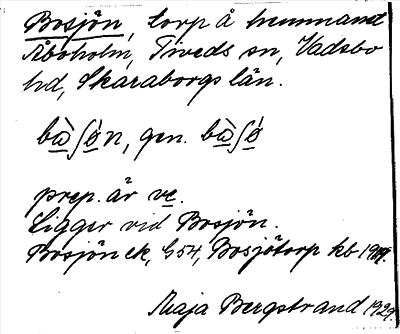 Bosjön, torp å hemmanet
Åboholm, Tiveds sn, Vadsbo
hd, Skaraborgs län.
bὼʃǿn, gen. bὼʃǿ
prep. är ve.
Ligger vid Bosjön.
Bosjön ek, G54, Bosjötorp kb
Maja Bergstrand 1929.